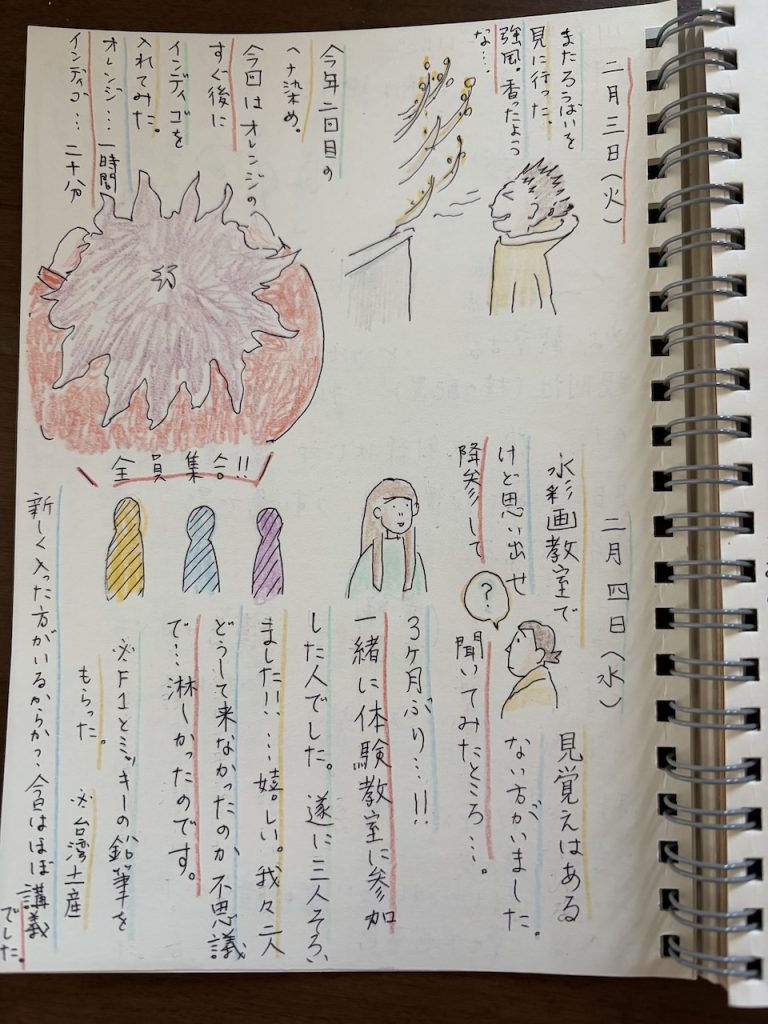 二月三日(火)
またろうばいを
見に行った。
強風。香ったよう
な…。
今年二回目の
ヘナ染め。
今回はオレンジの
すぐ後に
インディゴを
入れてみた。
オレンジ…一時間
インディゴ…二十分
二月四日(水)
水彩画教室で
見覚えはある
けど思い出せ
ない方がいました。
降参して
聞いてみたところ…。
?
3ヶ月ぶり…!!
一緒に体験教室に参加
した人でした。遂に三人そろい
ました!!…嬉しい。我々二人
どうして来なかったのか不思議
で…淋しかったのです。
全員集合!!
※F1とミッキーの鉛筆を
もらった。
※台湾土産
新しく入った方がいるからか?今日はほぼ講義
でした。